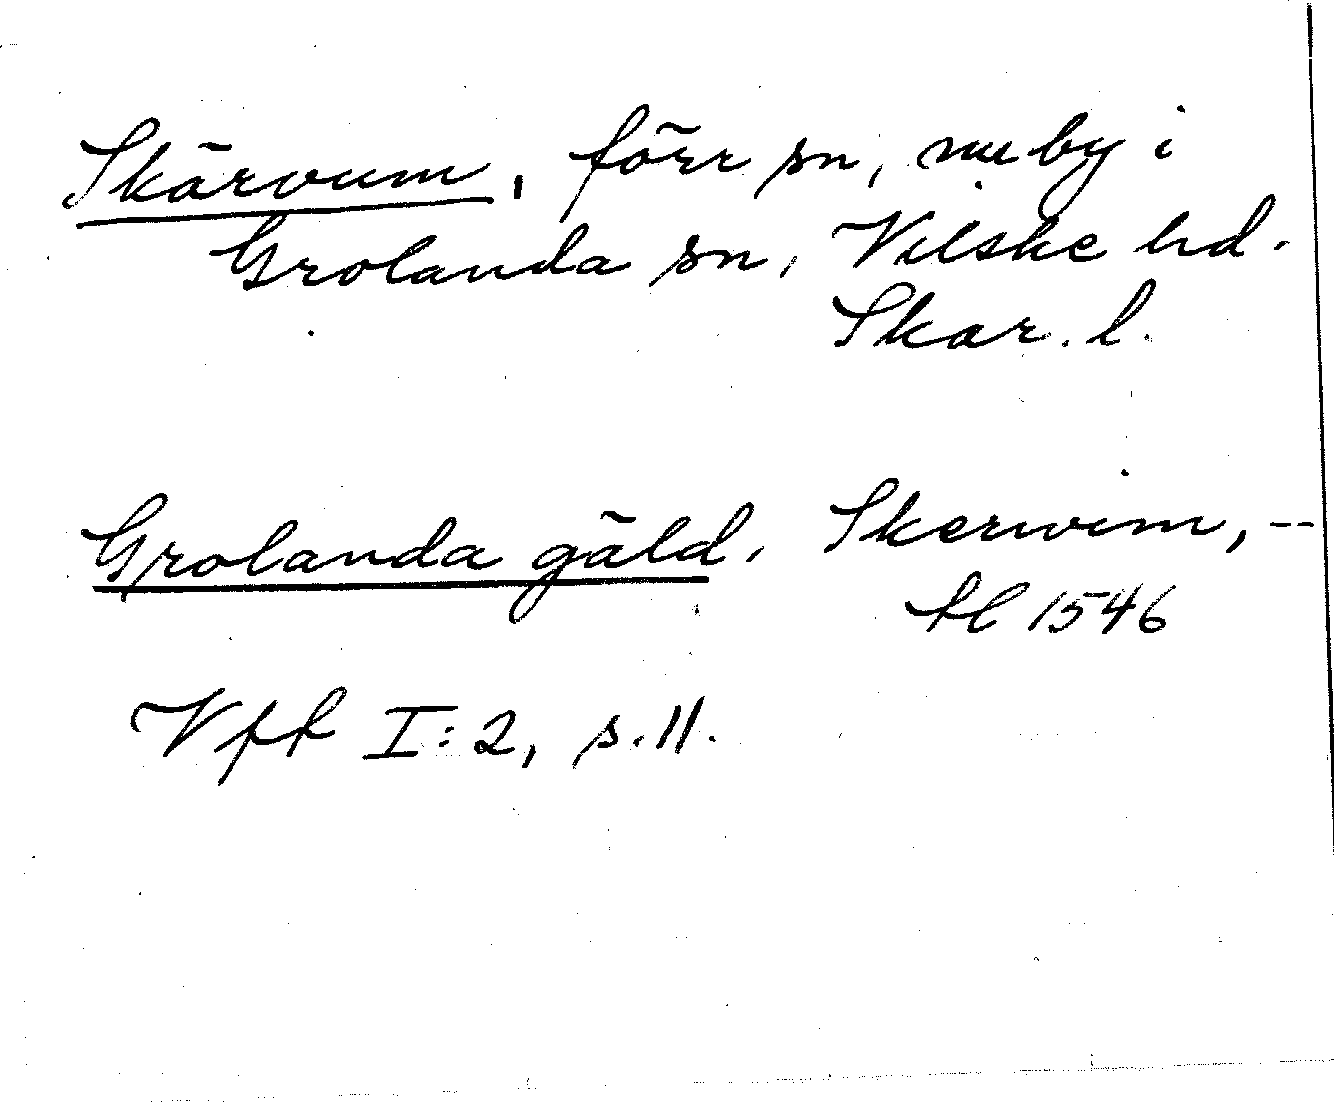 Skärvum, förr sn, nu by i
Grolanda sn, Vilske hd.
Skar. l.
Grolanda gäld. Skerwim, --
fl 1546
Vff I:2, s. 11.